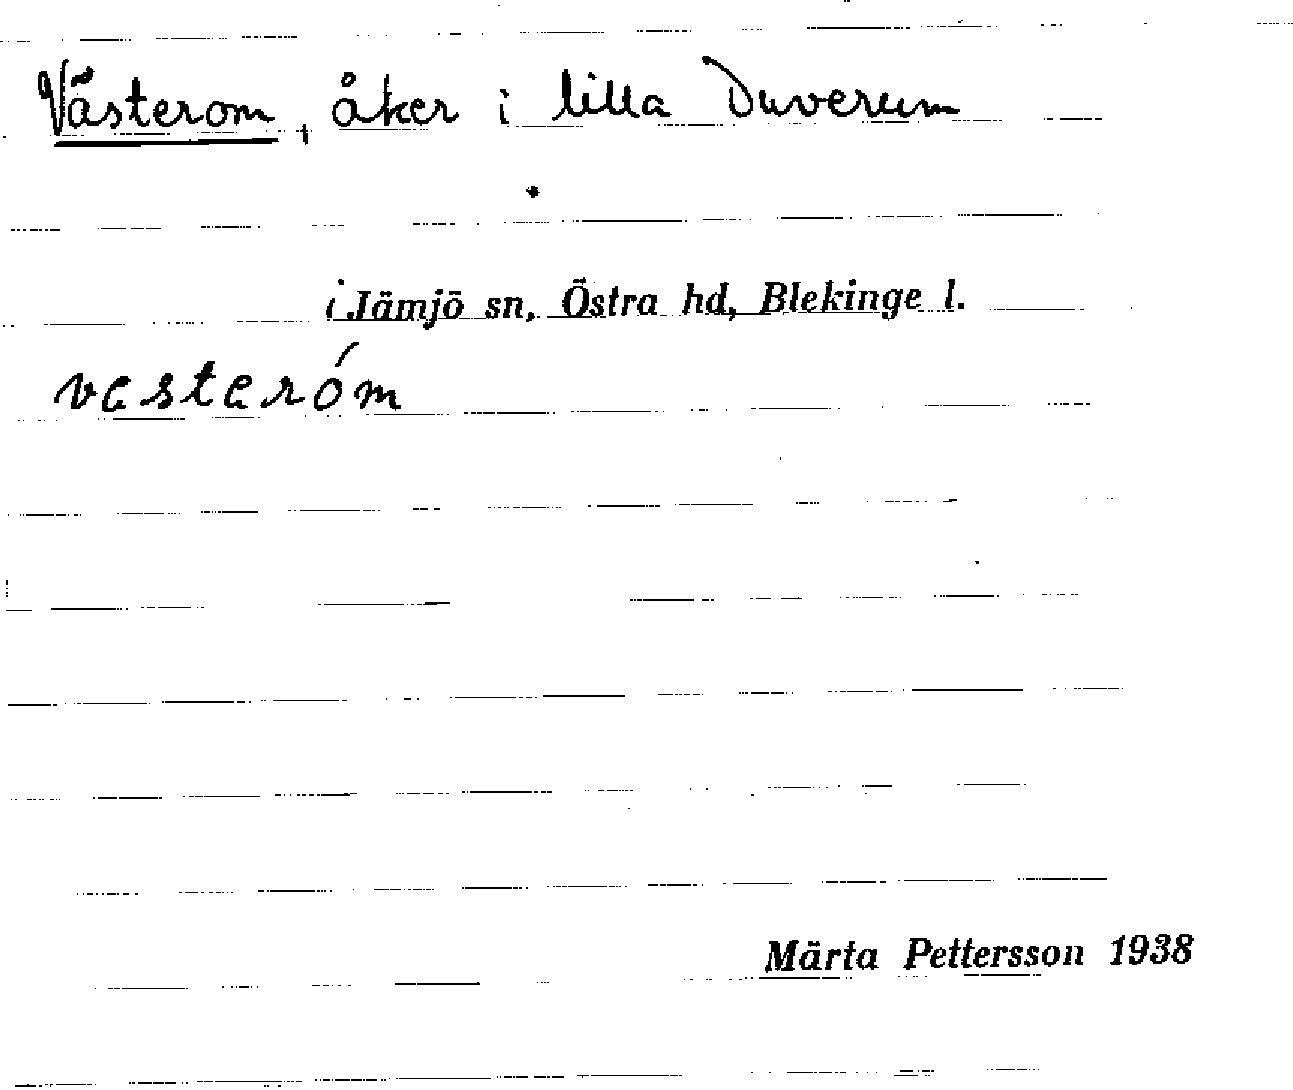 Västerom, åker i lilla Duverum
i Jämjö sn, Östra hd, Blekinge l.
vesteróm
Märta Pettersson 1938